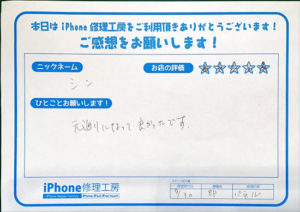 本日は iPhone 修理工房をご利用頂きありがとうございます!
ご感想をお願いします!
ニックネーム
お店の評価
シン
ひとことお願いします!
元通りになって良かったです
iPhone修理工房